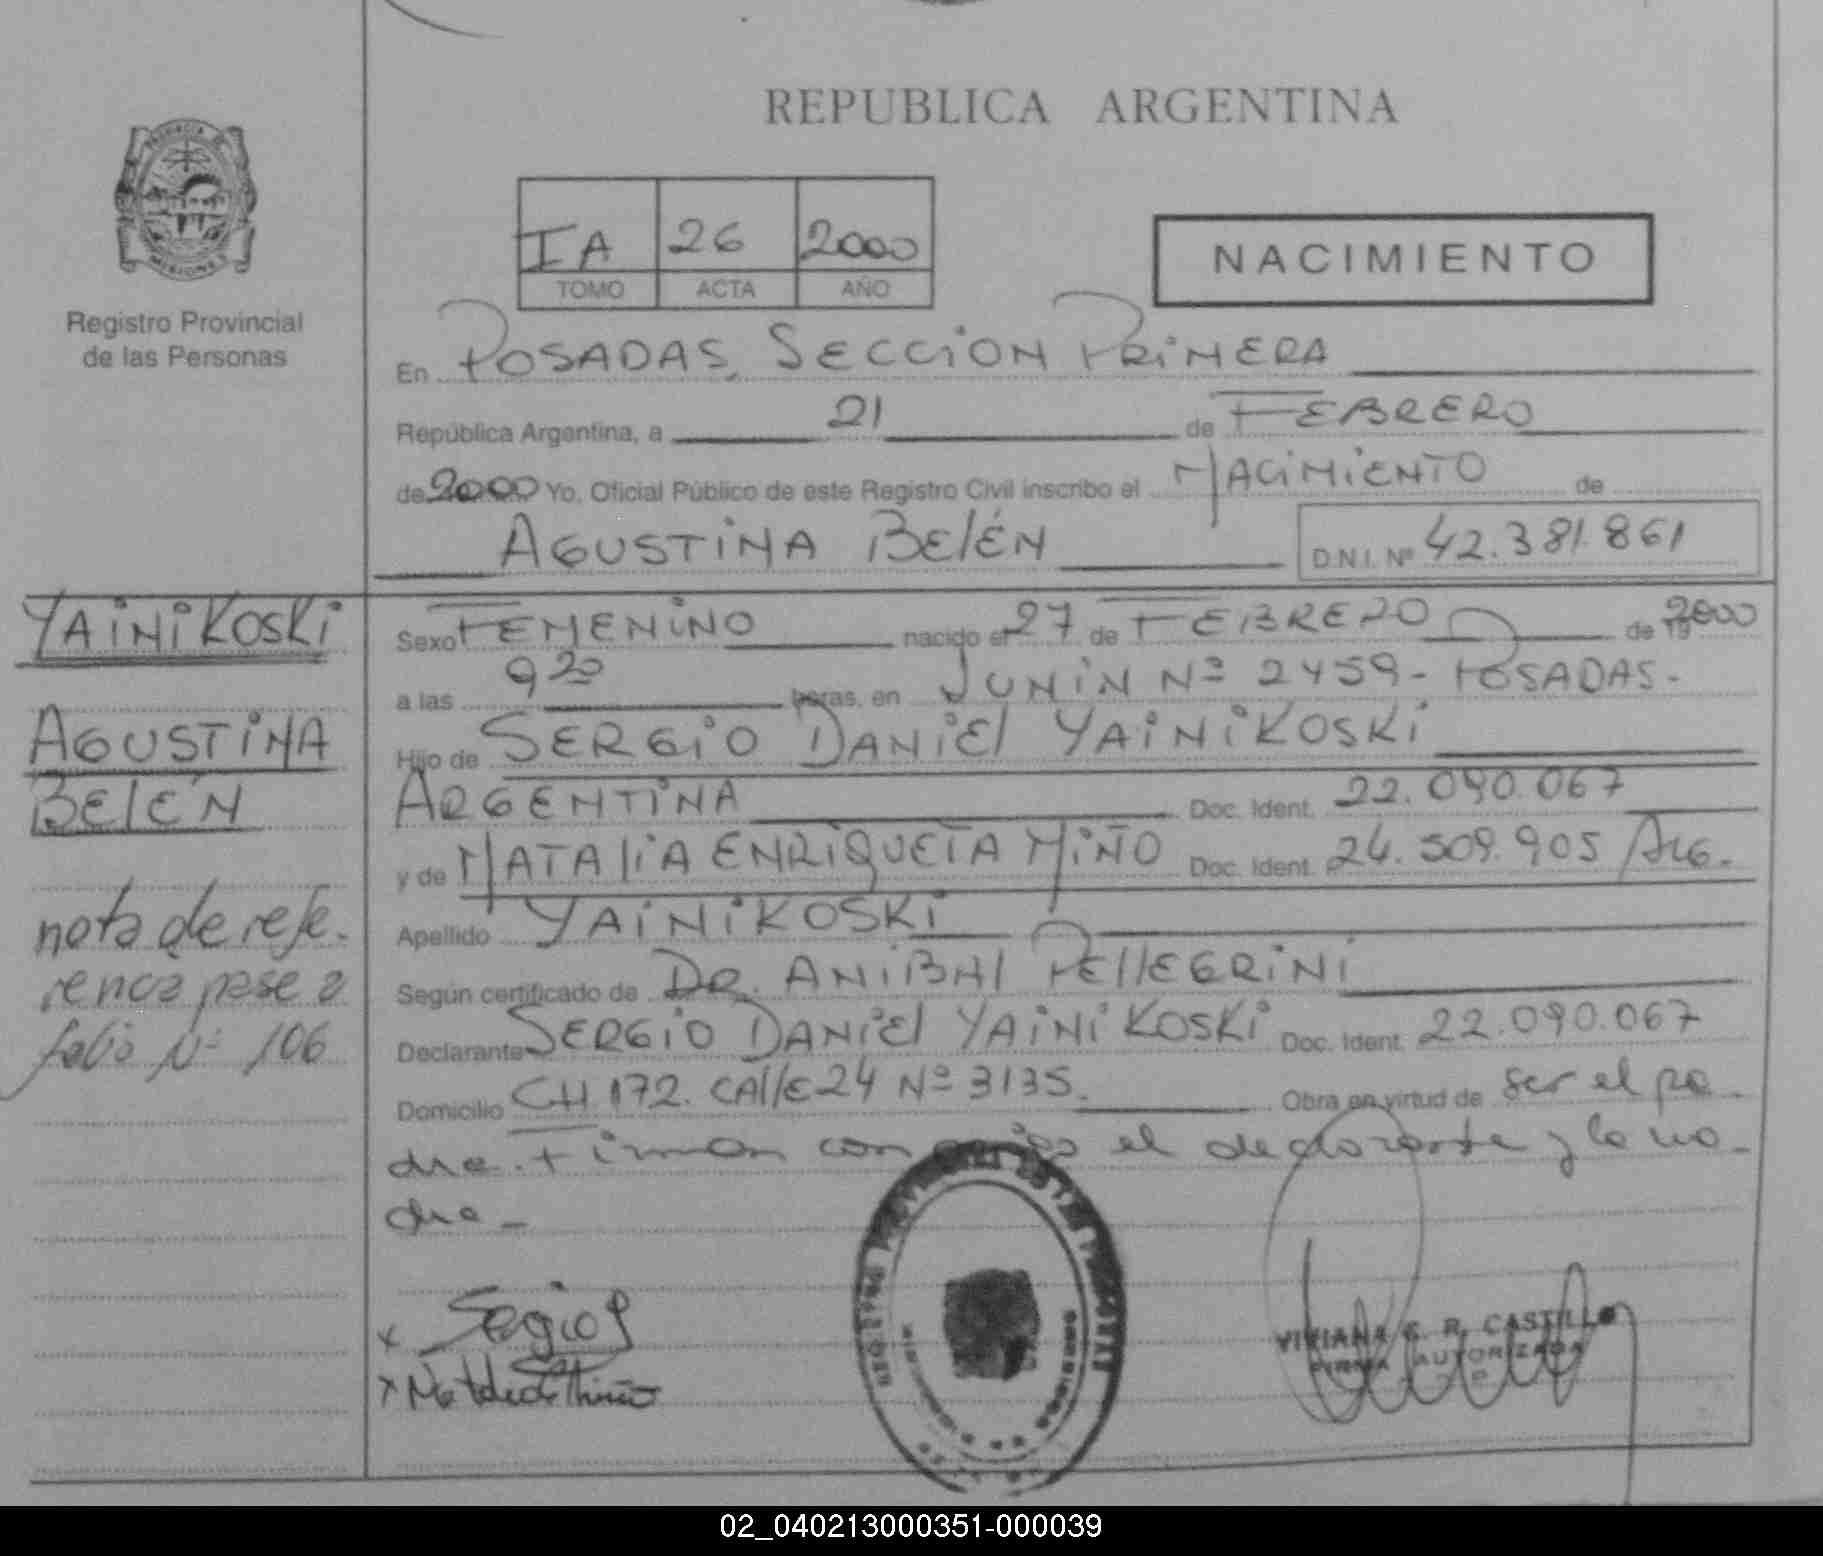 REPUBLICA ARGENTINA
IA 26 2000
TOMO ACTA AÑO
NACIMIENTO
Registro Provincial
de las Personas
En POSADAS, SECCION PRIMERA
República Argentina, a 21 de FEBRERO
de 2000 Yo, Oficial Público de este Registro Civil inscribo el NACIMIENTO de
AGUSTINA BElÉN D.N.I. Nº 42.381.861
YAINIKOSKI
AGUSTINA
BElÉN
nota de refe-
rencia pase a
folio Nº 106
Sexo FEMENINO nacido el 27 de FEBRERO de 2000
a las 9 20 horas, en JUNIN Nº 2459 - POSADAS -
Hijo de SERGIO DANIEl YAINIKOSKI
ARGENTINA Doc. Ident. 22.090.067
y de NATALIA ENRIQUETA MIÑO Doc. Ident. 24.509.905 ARG.
Apellido YAINIKOSKI
Según certificado de DR. ANIBAl PEllEGRINI
Declarante SERGIO DANIEl YAINIKOSKI Doc. Ident. 22.090.067
Domicilio CH 172. CAllE 24 Nº 3135. Obra en virtud de ser el pa-
dre. Firman con el declarante y la ma-
dre -
x Segio
x
VIVIANA E. R. CASTILLO
FIRMA AUTORIZADA
02_040213000351-000039